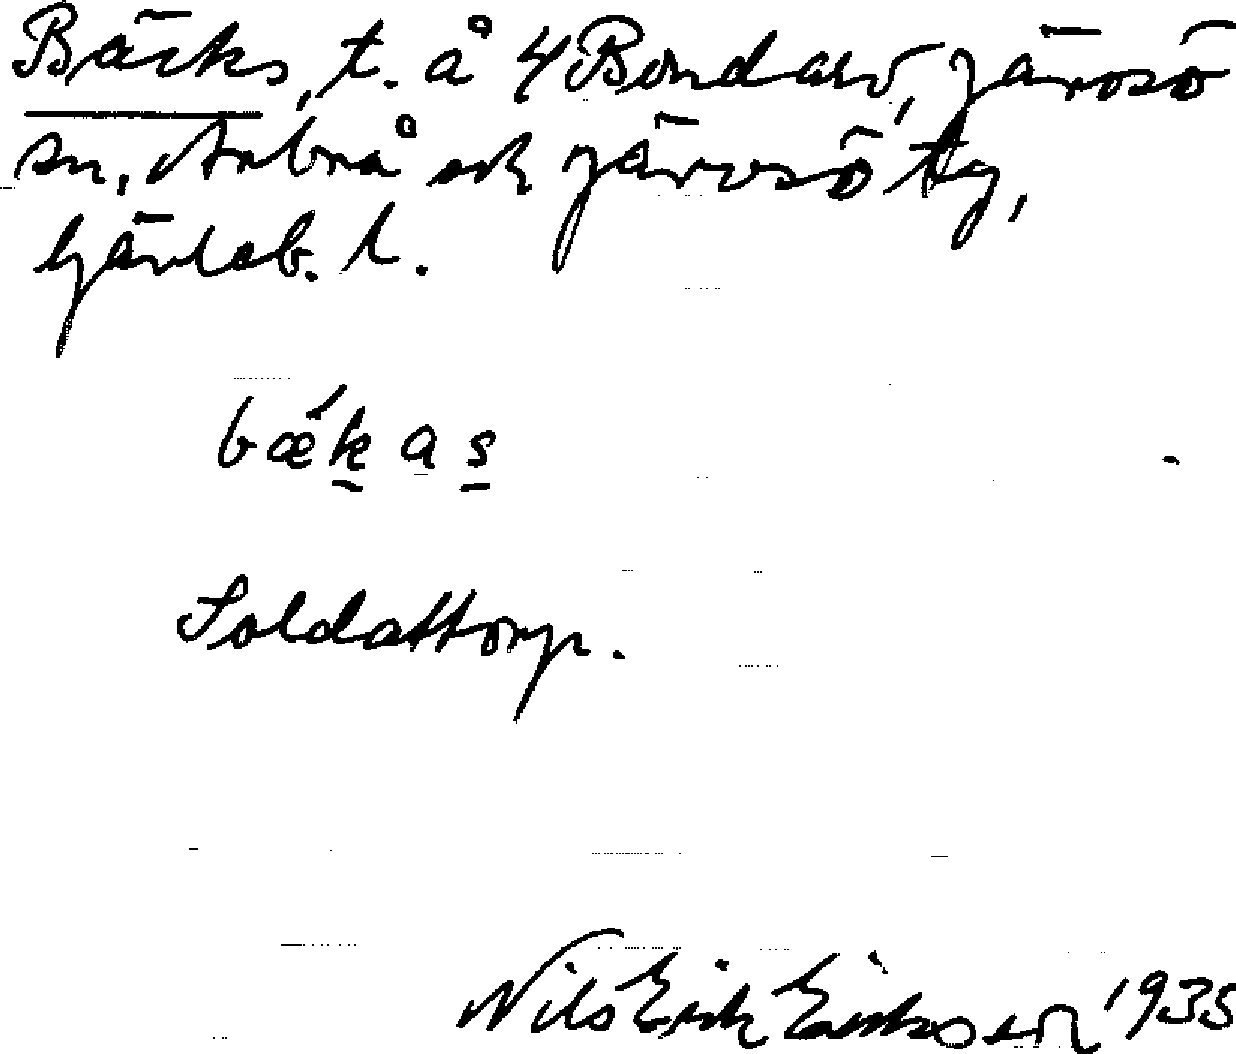 Bäcks, t. å 4 Bondarv, Järvsö
sn, Arbrå och Järvsö tg,
Gävleb. l.
bækas
Soldattorp.
Nils Erik Eriksson 1935